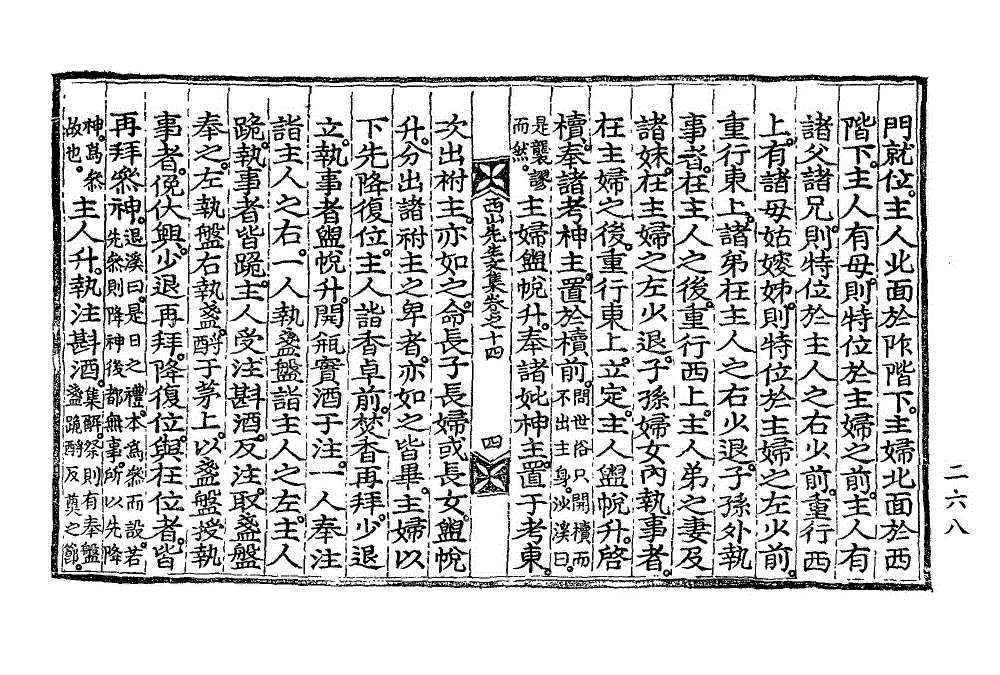 門就位。主人北面於阼階下。主婦北面於西
階下。主人有母。則特位於主婦之前。主人有
諸父諸兄。則特位於主人之右少前。重行西
上。有諸母姑嫂姊。則特位於主婦之左少前。
重行東上。諸弟在主人之右少退。子孫外執
事者。在主人之後。重行西上。主人弟之妻及
諸妹。在主婦之左少退。子孫婦女內執事者。
在主婦之後。重行東上。立定。主人盥帨升。啓
櫝。奉諸考神主。置於櫝前。問世俗只開櫝而不出主身。沙溪曰。
是襲謬而然。主婦盥帨升。奉諸妣神主。置于考東。
西山先生文集卷之十四
四
次出祔主。亦如之。命長子長婦或長女。盥帨
升。分出諸祔主之卑者。亦如之。皆畢。主婦以
下先降復位。主人詣香卓前。焚香再拜。少退
立。執事者盥帨升。開瓶實酒于注。一人奉注
詣主人之右。一人執盞盤詣主人之左。主人
跪。執事者皆跪。主人受注斟酒。反注。取盞盤
奉之。左執盤右執盞。酹于茅上。以盞盤授執
事者。俛伏興。少退再拜。降復位。與在位者。皆
再拜參神。退溪曰。是日之禮。本爲參而設。若先參則降神後都無事。所以先降
神。爲參故也。主人升。執注斟酒。集解。祭則有奉盤盞跪酹反奠之節。
二六八